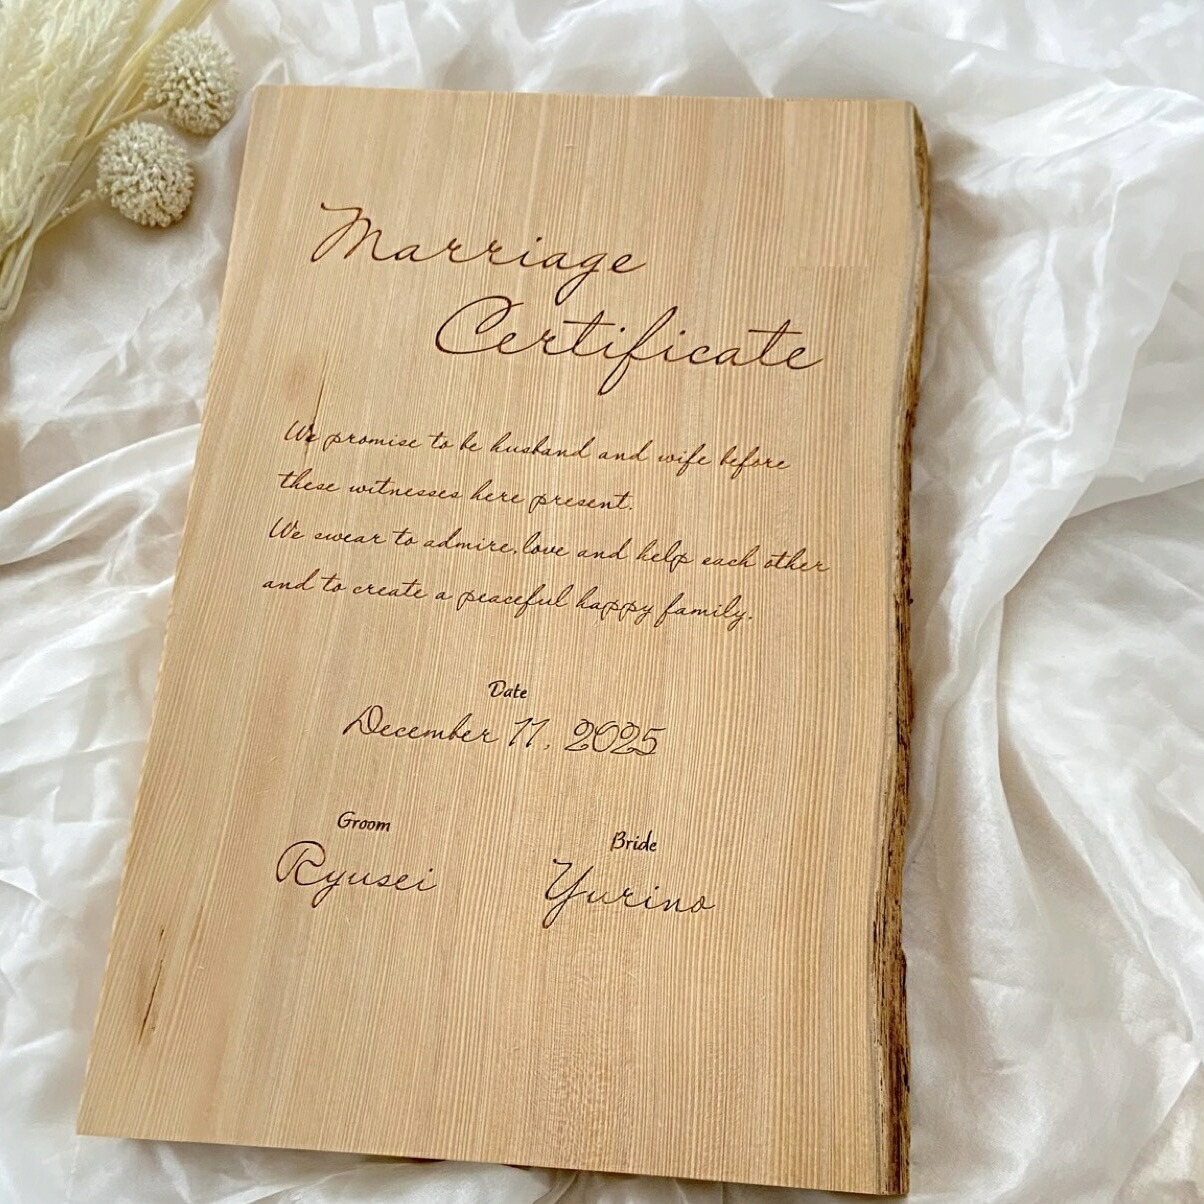 Marriage
Certificate
We promise to be husband and wife before
these witnesses here present.
We swear to admire,love and help each other
and to create a peaceful happy family.
Date
December 11, 2025
Groom
Bride
Ryusei
Yurino